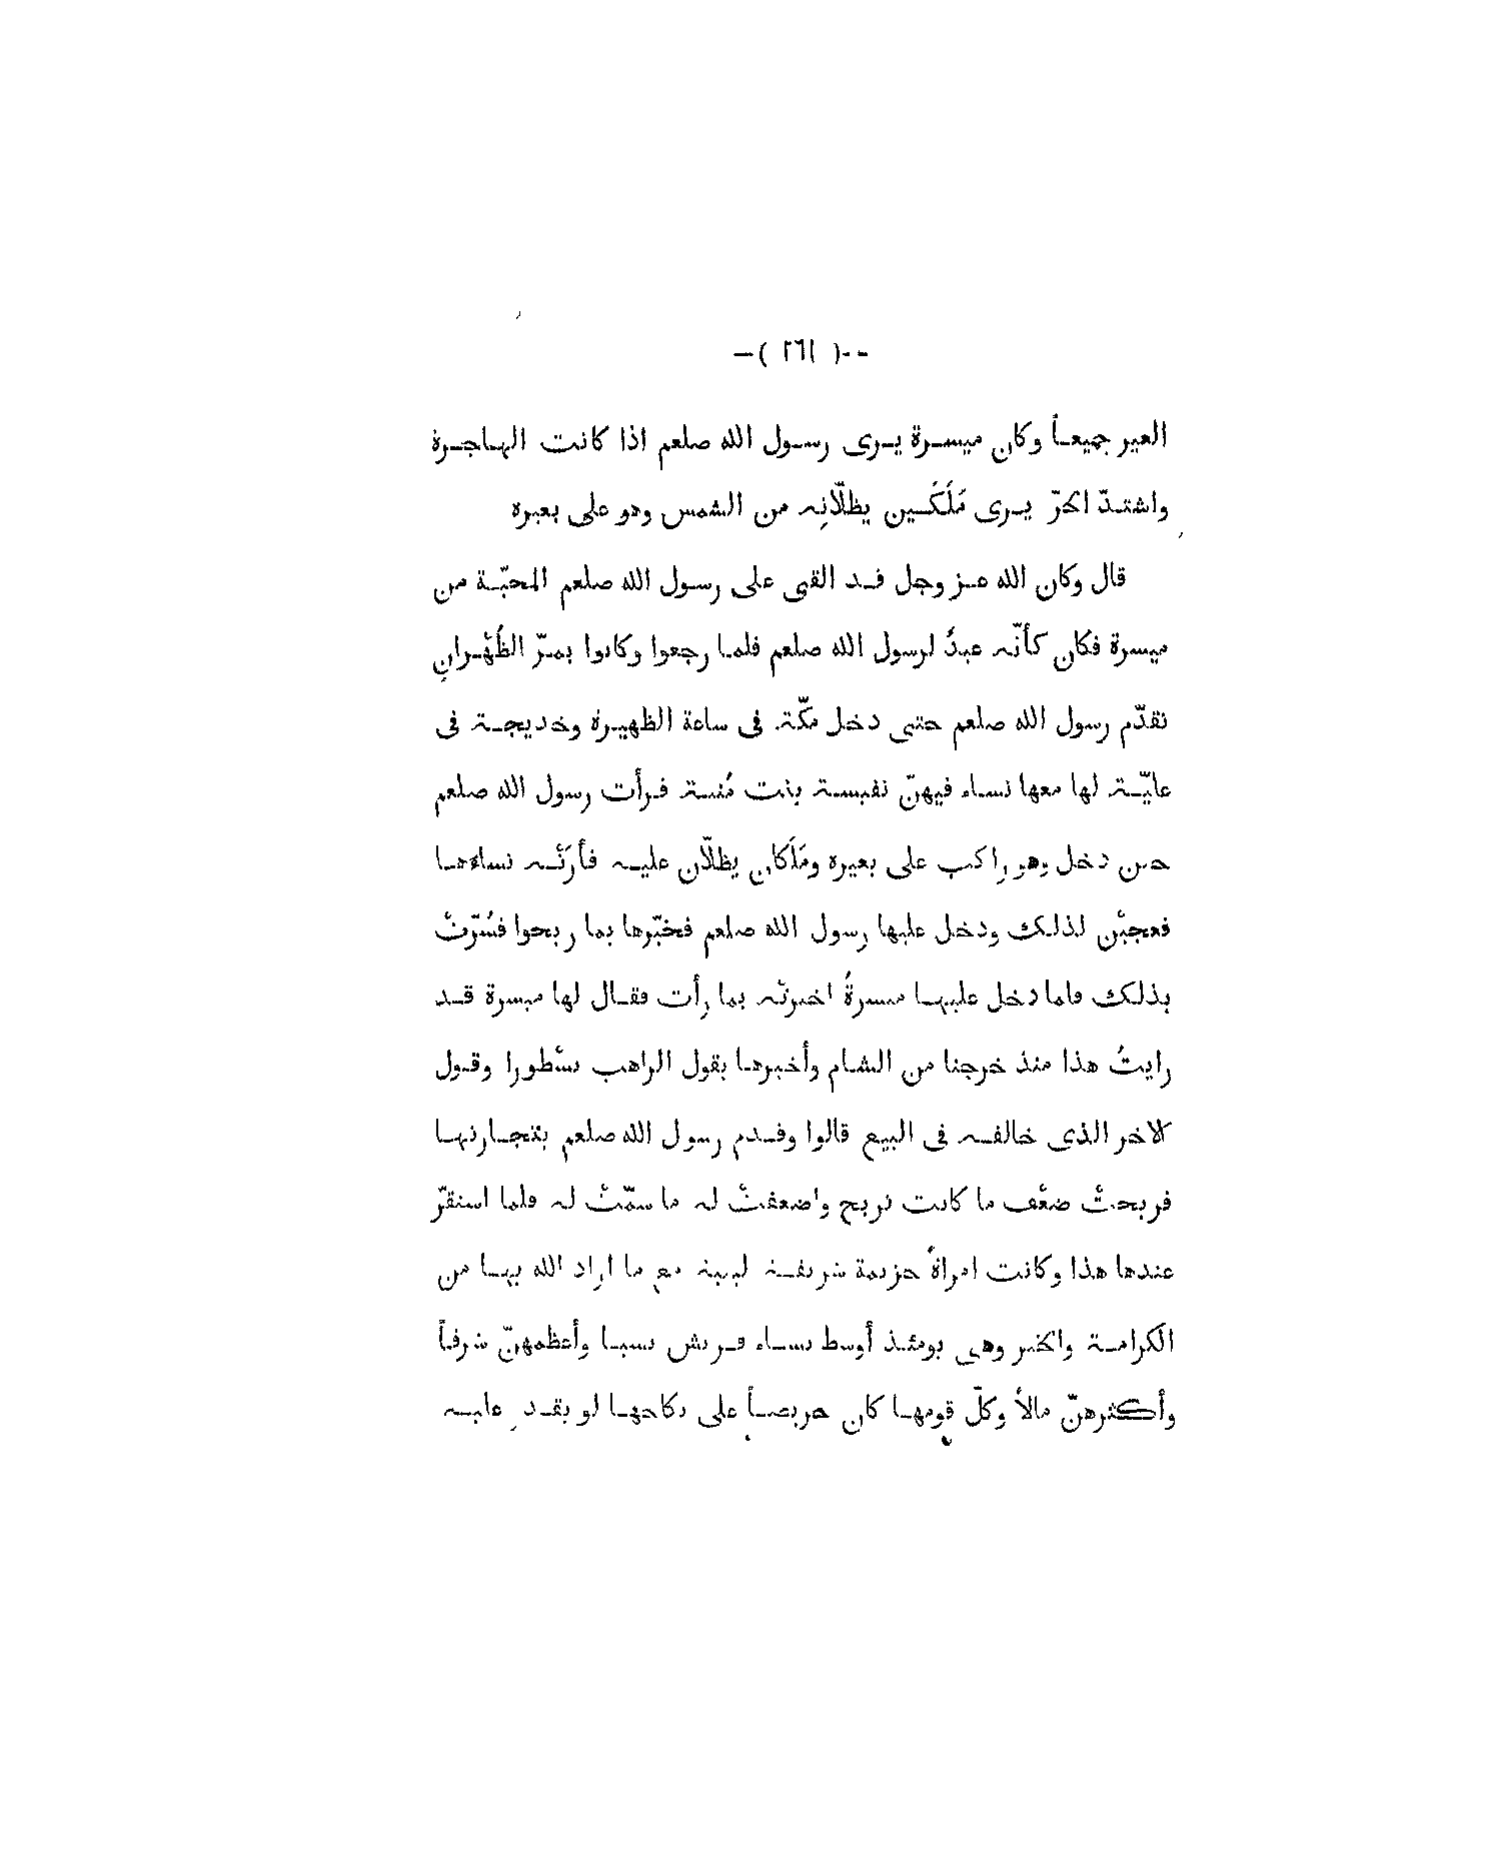 -( ٢٦١ )-
العير جميعاً وكان ميسرة يرى رسول الله صلعم اذا كانت الهاجرة
واشتدّ الحرّ يرى مَلَكَين يظلّانِه من الشمس وهو على بعيره
قال وكان الله عز وجل قد القى على رسول الله صلعم المحبّة من
ميسرة فكان كأنّه عبدٌ لرسول الله صلعم فلما رجعوا وكانوا بمرّ الظَّهْرانِ
تقدّم رسول الله صلعم حتى دخل مكّة فى ساعة الظهيرة وخديجة فى
عليّة لها معها نساء فيهنّ نفيسة بنت مُنية فرأت رسول الله صلعم
حين دخل وهو راكب على بعيره ومَلَكان يظلّان عليه فأرَتْه نساءها
فعجبْن لذلك ودخل عليها رسول الله صلعم فخبّرها بما ربحوا فسُرّتْ
بذلك فلما دخل عليها ميسرةُ اخبرتْه بما رأت فقال لها ميسرة قد
رايتُ هذا منذ خرجنا من الشام وأخبرها بقول الراهب نسْطورا وقول
الاخر الذى خالفه فى البيع قالوا وقدم رسول الله صلعم بتجارتها
فربحتْ ضعْف ما كانت تربح واضعفتْ له ما سمّتْ له فلما استقرّ
عندها هذا وكانت امراةً حزيمة شريفة لبيبة مع ما اراد الله بها من
الكرامة والخير وهى يومئذ أوسط نساء قريش نسبا وأعظمهنّ شرفاً
وأكثرهنّ مالاً وكلّ قومها كان حريصاً على نكاحها لو يقدر عليه